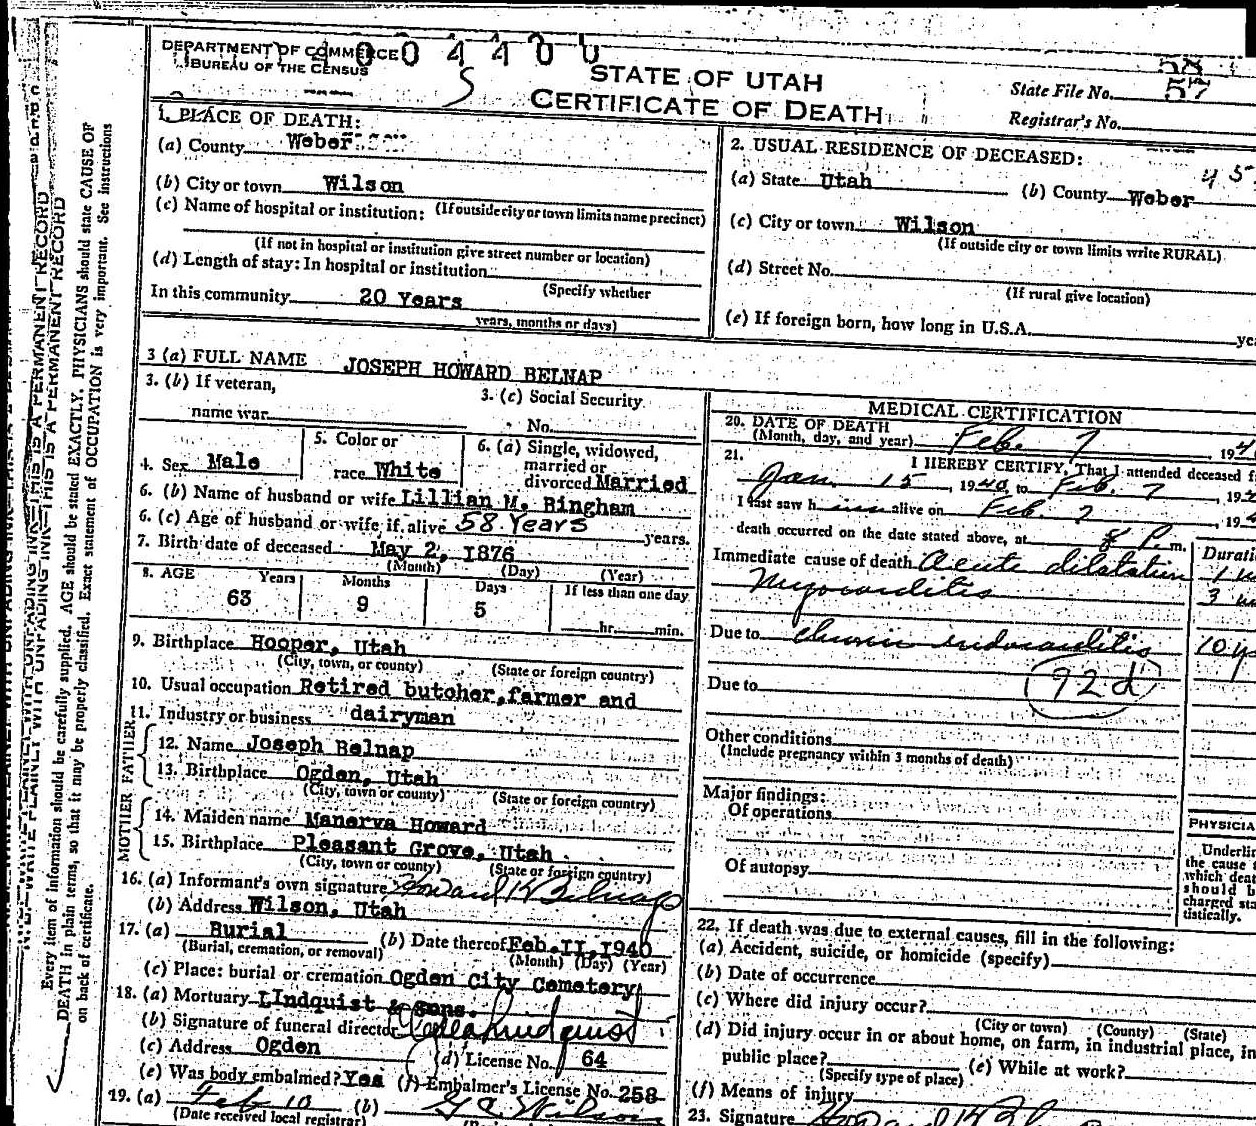 DEPARTMENT OF COMMERCE
BUREAU OF THE CENSUS
STATE OF UTAH
CERTIFICATE OF DEATH
State File No. 57
Registrar's No.
1. PLACE OF DEATH:
(a) County Weber
(b) City or town Wilson
(If outside city or town limits name precinct)
(c) Name of hospital or institution:
(If not in hospital or institution give street number or location)
(d) Length of stay: In hospital or institution
(Specify whether
In this community 20 Years
years, months or days)
2. USUAL RESIDENCE OF DECEASED:
(a) State Utah (b) County Weber
(c) City or town Wilson
(If outside city or town limits write RURAL)
(d) Street No.
(If rural give location)
(e) If foreign born, how long in U.S.A.
3 (a) FULL NAME JOSEPH HOWARD BELNAP
3. (b) If veteran,
name war
3. (c) Social Security
No.
4. Sex Male
5. Color or
race White
6. (a) Single, widowed,
married or
divorced Married
6. (b) Name of husband or wife Lillian M. Bingham
6. (c) Age of husband or wife if alive 58 Years years.
7. Birth date of deceased May 2, 1876
(Month) (Day) (Year)
8. AGE Years Months Days If less than one day
63 9 5 hr. min.
9. Birthplace Hooper, Utah
(City, town, or county) (State or foreign country)
10. Usual occupation Retired butcher, farmer and
11. Industry or business dairyman
FATHER
12. Name Joseph Belnap
13. Birthplace Ogden, Utah
(City, town or county) (State or foreign country)
MOTHER
14. Maiden name Manerva Howard
15. Birthplace Pleasant Grove, Utah
(City, town or county) (State or foreign country)
16. (a) Informant's own signature Howard K Belnap
(b) Address Wilson, Utah
17. (a) Burial (b) Date thereof Feb. 11, 1940
(Burial, cremation, or removal) (Month) (Day) (Year)
(c) Place: burial or cremation Ogden City Cemetery
18. (a) Mortuary LIndquist & Sons.
(b) Signature of funeral director Lindquist
(c) Address Ogden (d) License No. 64
(e) Was body embalmed? Yes (f) Embalmer's License No. 258
19. (a) Feb 10 (b) Wilson
(Date received local registrar)
MEDICAL CERTIFICATION
20. DATE OF DEATH
(Month, day, and year) Feb. 7, 194
21. I HEREBY CERTIFY, That I attended deceased f
Jan. 15, 1940, to Feb. 7, 19
I last saw him alive on Feb. 7, 19
death occurred on the date stated above, at 8 P. m.
Immediate cause of death Acute dilatation
Myocarditis
Due to Chronic endocarditis 10 y
92d
Due to
Other conditions
(Include pregnancy within 3 months of death)
Major findings:
Of operations
Of autopsy
PHYSICIA
Underlin
the cause
which deat
should b
charged sta
tistically.
22. If death was due to external causes, fill in the following:
(a) Accident, suicide, or homicide (specify)
(b) Date of occurrence
(c) Where did injury occur?
(City or town) (County) (State)
(d) Did injury occur in or about home, on farm, in industrial place, in
public place? (e) While at work?
(Specify type of place)
(f) Means of injury
23. Signature
Every item of information should be carefully supplied. AGE should be stated EXACTLY. PHYSICIANS should state CAUSE OF
DEATH in plain terms, so that it may be properly classified. Exact statement of OCCUPATION is very important. See instructions
on back of certificate.